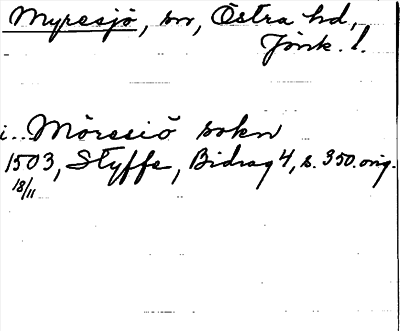 Myresjö, sn, Östra hd,
Jönk. l.
i. Möresiö sokn
1503, Styffe, Bidrag 4, s. 350. orig.
18/11